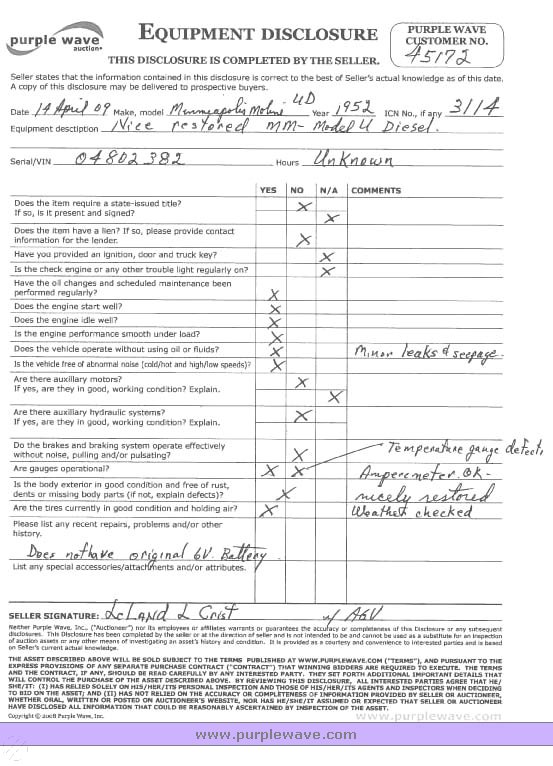 purple wave
auction
EQUIPMENT DISCLOSURE
THIS DISCLOSURE IS COMPLETED BY THE SELLER.
PURPLE WAVE
CUSTOMER NO.
45172
Seller states that the information contained in this disclosure is correct to the best of Seller's actual knowledge as of this date.
A copy of this disclosure may be delivered to prospective buyers.
Date 14 April 09 Make, model Minneapolis Moline UD Year 1952 ICN No., if any 3114
Equipment desctiption Nice restored MM- Model U Diesel.
Serial/VIN 04802382 Hours UnKnown
YES NO N/A COMMENTS
Does the item require a state-issued title? X
If so, is it present and signed? X
Does the item have a lien? If so, please provide contact
information for the lender. X
Have you provided an ignition, door and truck key? X
Is the check engine or any other trouble light regularly on? X
Have the oil changes and scheduled maintenance been
performed regularly? X
Does the engine start well? X
Does the engine idle well? X
Is the engine performance smooth under load? X
Does the vehicle operate without using oil or fluids? X Minor leaks & seepage.
Is the vehicle free of abnormal noise (cold/hot and high/low speeds)? X
Are there auxillary motors? X
If yes, are they in good, working condition? Explain. X
Are there auxillary hydraulic systems? X
If yes, are they in good, working condition? Explain.
Do the brakes and braking system operate effectively
without noise, pulling and/or pulsating? X Temperature gauge defect,
Are gauges operational? X X Amperemeter OK-
Is the body exterior in good condition and free of rust,
dents or missing body parts (if not, explain defects)? X nicely restored
Are the tires currently in good condition and holding air? X Weather checked
Please list any recent repairs, problems and/or other
history.
Does not have original 6V. Battery
List any special accessories/attachments and/or attributes.
SELLER SIGNATURE: LeLand L Crist
Neither Purple Wave, Inc., ("Auctioneer") nor its employees or affiliates warrants or guarantees the accuracy or completeness of this Disclosure or any subsequent
disclosures. This Disclosure has been completed by the seller or at the direction of seller and is not intended to be and cannot be used as a substitute for an inspection
of auction assets or any other means of investigating an asset's history and condition. It is provided as a courtesy and convenience to interested parties and is based
on Seller's current actual knowledge.
THE ASSET DESCRIBED ABOVE WILL BE SOLD SUBJECT TO THE TERMS PUBLISHED AT WWW.PURPLEWAVE.COM ("TERMS"), AND PURSUANT TO THE
EXPRESS PROVISIONS OF ANY SEPARATE PURCHASE CONTRACT ("CONTRACT") THAT WINNING BIDDERS ARE REQUIRED TO EXECUTE. THE TERMS
AND THE CONTRACT, IF ANY, SHOULD BE READ CAREFULLY BY ANY INTERESTED PARTY. THEY SET FORTH ADDITIONAL IMPORTANT DETAILS THAT
WILL CONTROL THE PURCHASE OF THE ASSET DESCRIBED ABOVE. BY REVIEWING THIS DISCLOSURE, ALL INTERESTED PARTIES AGREE THAT HE/
SHE/IT: (I) HAS RELIED SOLELY ON HIS/HER/ITS PERSONAL INSPECTION AND THOSE OF HIS/HER/ITS AGENTS AND INSPECTORS WHEN DECIDING
TO BID ON THE ASSET; AND (II) HAS NOT RELIED ON THE ACCURACY OR COMPLETENESS OF INFORMATION PROVIDED BY SELLER OR AUCTIONEER,
WHETHER ORAL, WRITTEN OR POSTED ON AUCTIONEER'S WEBSITE, NOR HAS HE/SHE/IT ASSUMED OR EXPECTED THAT SELLER OR AUCTIONEER
HAVE DISCLOSED ALL INFORMATION THAT COULD BE REASONABLY ASCERTAINED BY INSPECTION OF THE ASSET.
Copyright © 2008 Purple Wave, Inc.
www.purplewave.com
www.purplewave.com